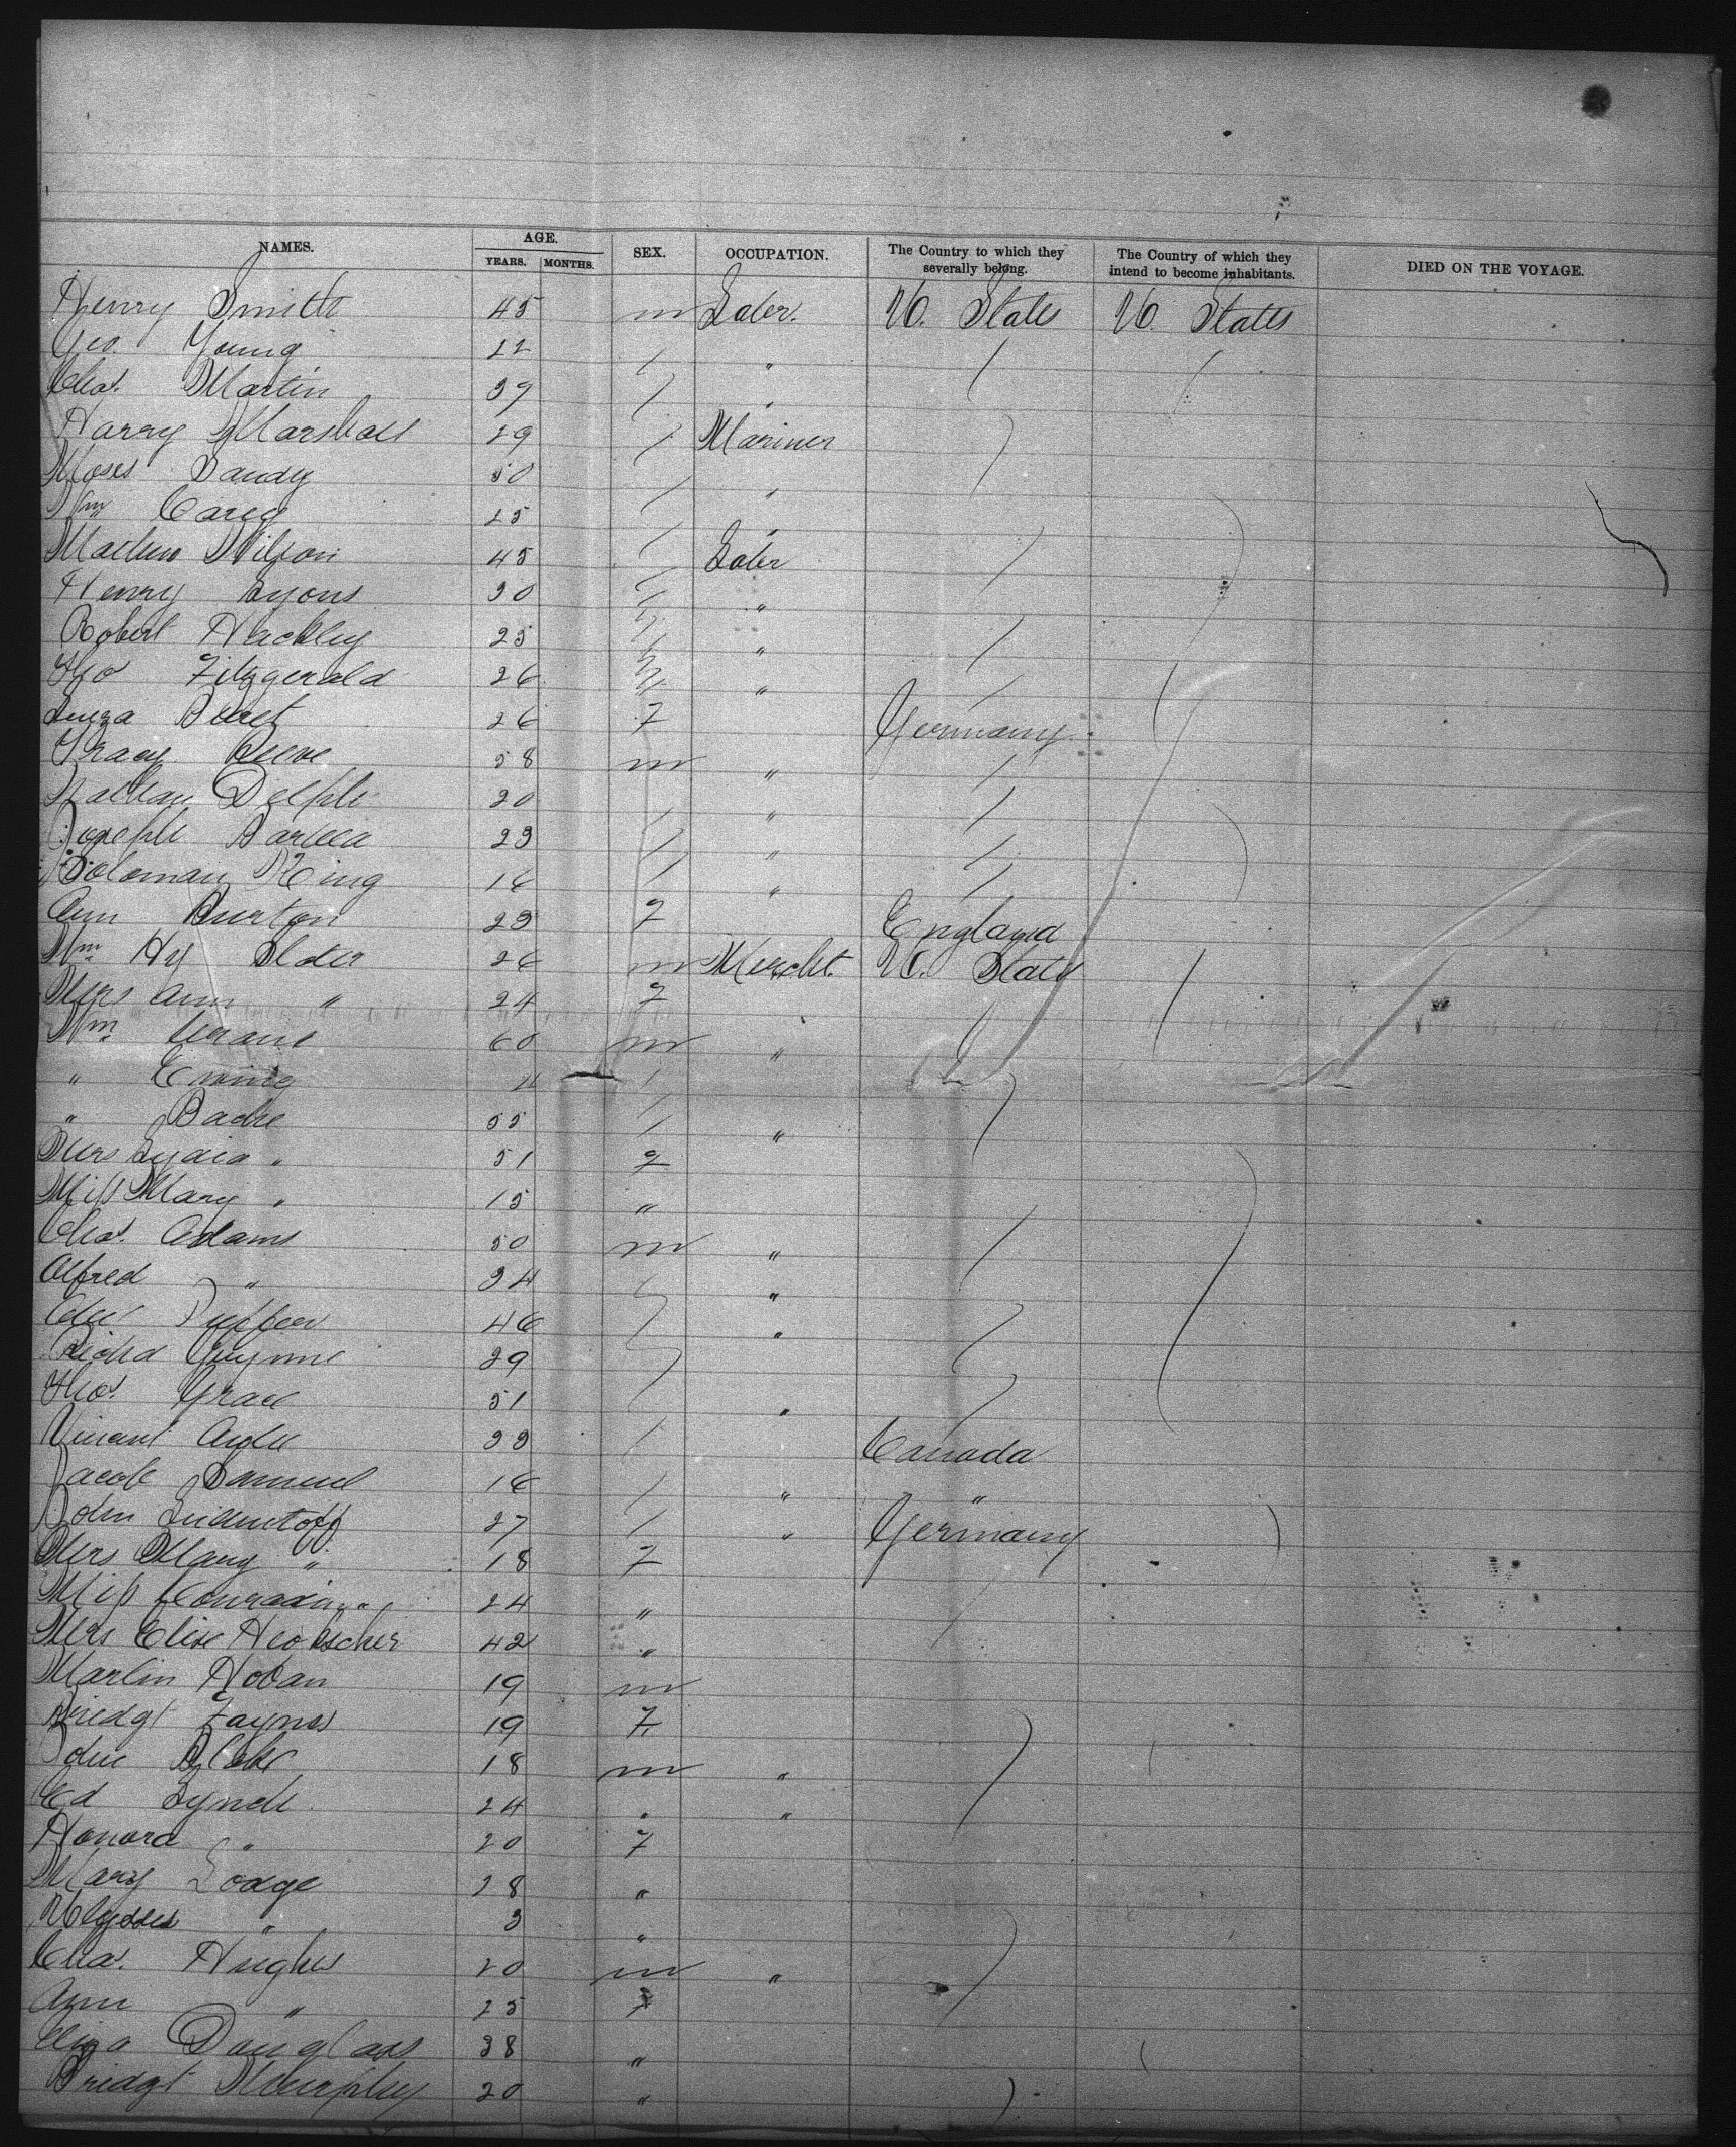 NAMES. AGE. YEARS. MONTHS. SEX. OCCUPATION. The Country to which they severally belong. The Country of which they intend to become inhabitants. DIED ON THE VOYAGE.
Henry Smith 45 m Labr. U. States U. States
Geo. Young 22 "
Chas. Martin 39 "
Harry Marshall 29 Mariner
Moses Bandy 50 "
Wm Carey 25 "
Mathew Wilson 45 Labr
Henry Lyons 30 "
Robert Hackley 25 "
Tho Fitzgerald 26 "
26 F Germany
58 m "
Nathan Delph 20 "
Joseph 23 "
Soloman King 16 "
Ann Burton 23 F England
Wm. Hy Elder 26 m Mercht. U. States
Mrs Ann " 24 F
Wm. Crane 60 m "
" Ewing "
" Badre 55 "
Mrs Lydia " 51 F
Miss Mary " 15 "
Chas. Adams 50 m "
Alfred " 34 "
46 "
Richd Gwynne 29
Thos. Grace 51 "
Vincent 33 Canada
Jacob Samuel 16 " "
John 27 " Germany
Mrs Mary " 18 F
Miss " 24 "
Mrs Elise Heckscher 42 "
Martin Hoban 19 m
Bridgt Faynes 19 F
John Blake 18 m "
Ed Lynch 24 " "
Honora " 20 F
Mary Lodge 28 "
Ulysses " 3 "
Chas. Hughes 20 m "
Ann " 25 F
Eliza Douglass 38 "
Bridgt Murphy 20 "